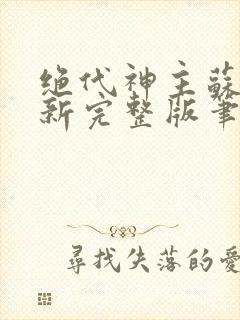 绝代神主蘇
新完整版筆
尋找失落的愛